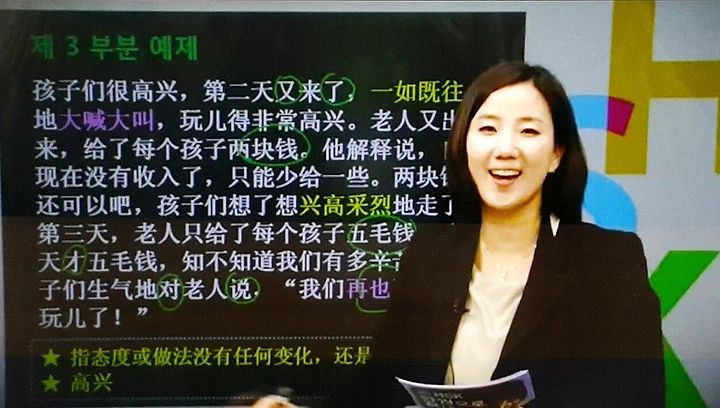 제 3 부분 예제
孩子们很高兴，第二天又来了，一如既往
地大喊大叫，玩儿得非常高兴。老人又出
来，给了每个孩子两块钱。他解释说，
现在没有收入了，只能少给一些。两块钱
还可以吧，孩子们想了想兴高采烈地走了
第三天，老人只给了每个孩子五毛钱
天才五毛钱，知不知道我们有多辛苦
子们生气地对老人说，“我们再也
玩儿了！”
★ 指态度或做法没有任何变化，还是
★ 高兴
HSK